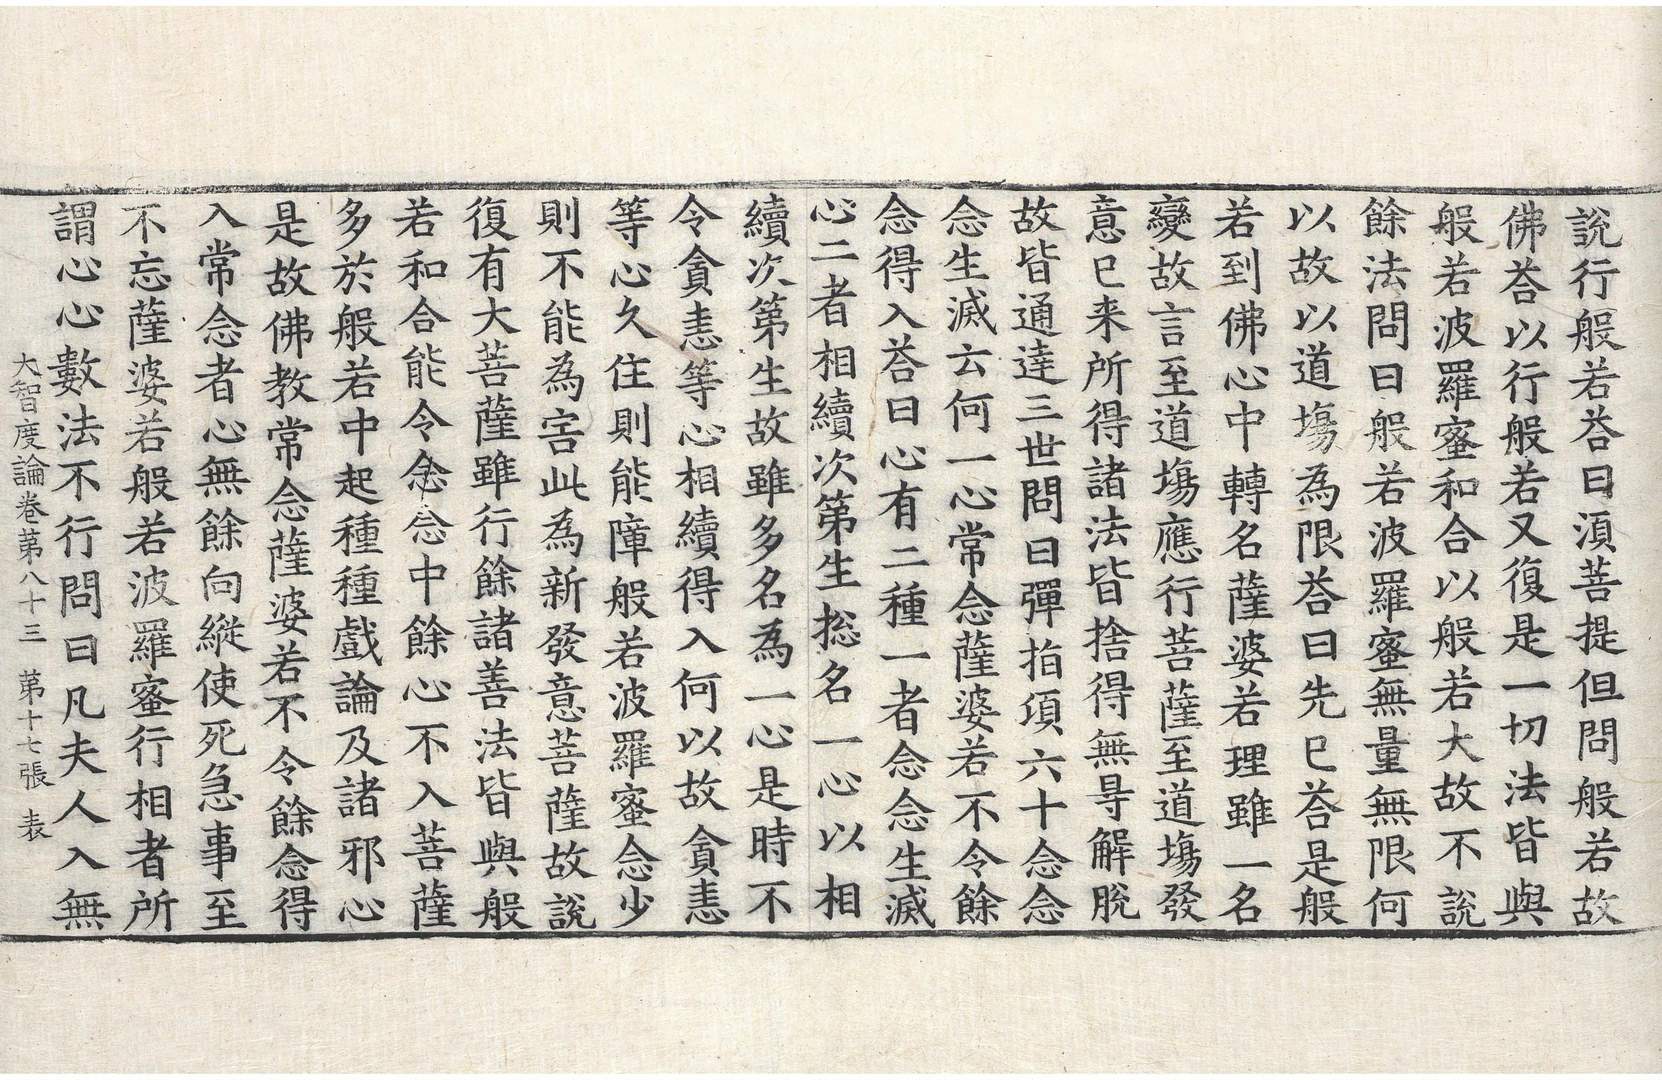 說行般若荅曰湏菩提但問般若故
佛荅以行般若又復是一切法皆與
般若波羅蜜和合以般若大故不說
餘法問曰般若波羅蜜無量無限何
以故以道塲為限荅曰先已荅是般
若到佛心中轉名薩婆若理雖一名
變故言至道塲應行菩薩至道塲發
意已来所得諸法皆捨得無㝵解脫
故皆通達三世問曰彈指頃六十念念
念生滅云何一心常念薩婆若不令餘
念得入荅曰心有二種一者念念生滅
心二者相續次第生捴名一心以相
續次第生故雖多名為一心是時不
令貪恚等心相續得入何以故貪恚
等心久住則能障般若波羅蜜念少
則不能為害此為新發意菩薩故說
復有大菩薩雖行餘諸善法皆與般
若和合能令念念中餘心不入菩薩
多於般若中起種種戲論及諸邪心
是故佛教常念薩婆若不令餘念得
入常念者心無餘向縱使死急事至
不忘薩婆若般若波羅蜜行相者所
謂心心數法不行問曰凡夫人入無
大智度論卷第八十三 第十七張 表